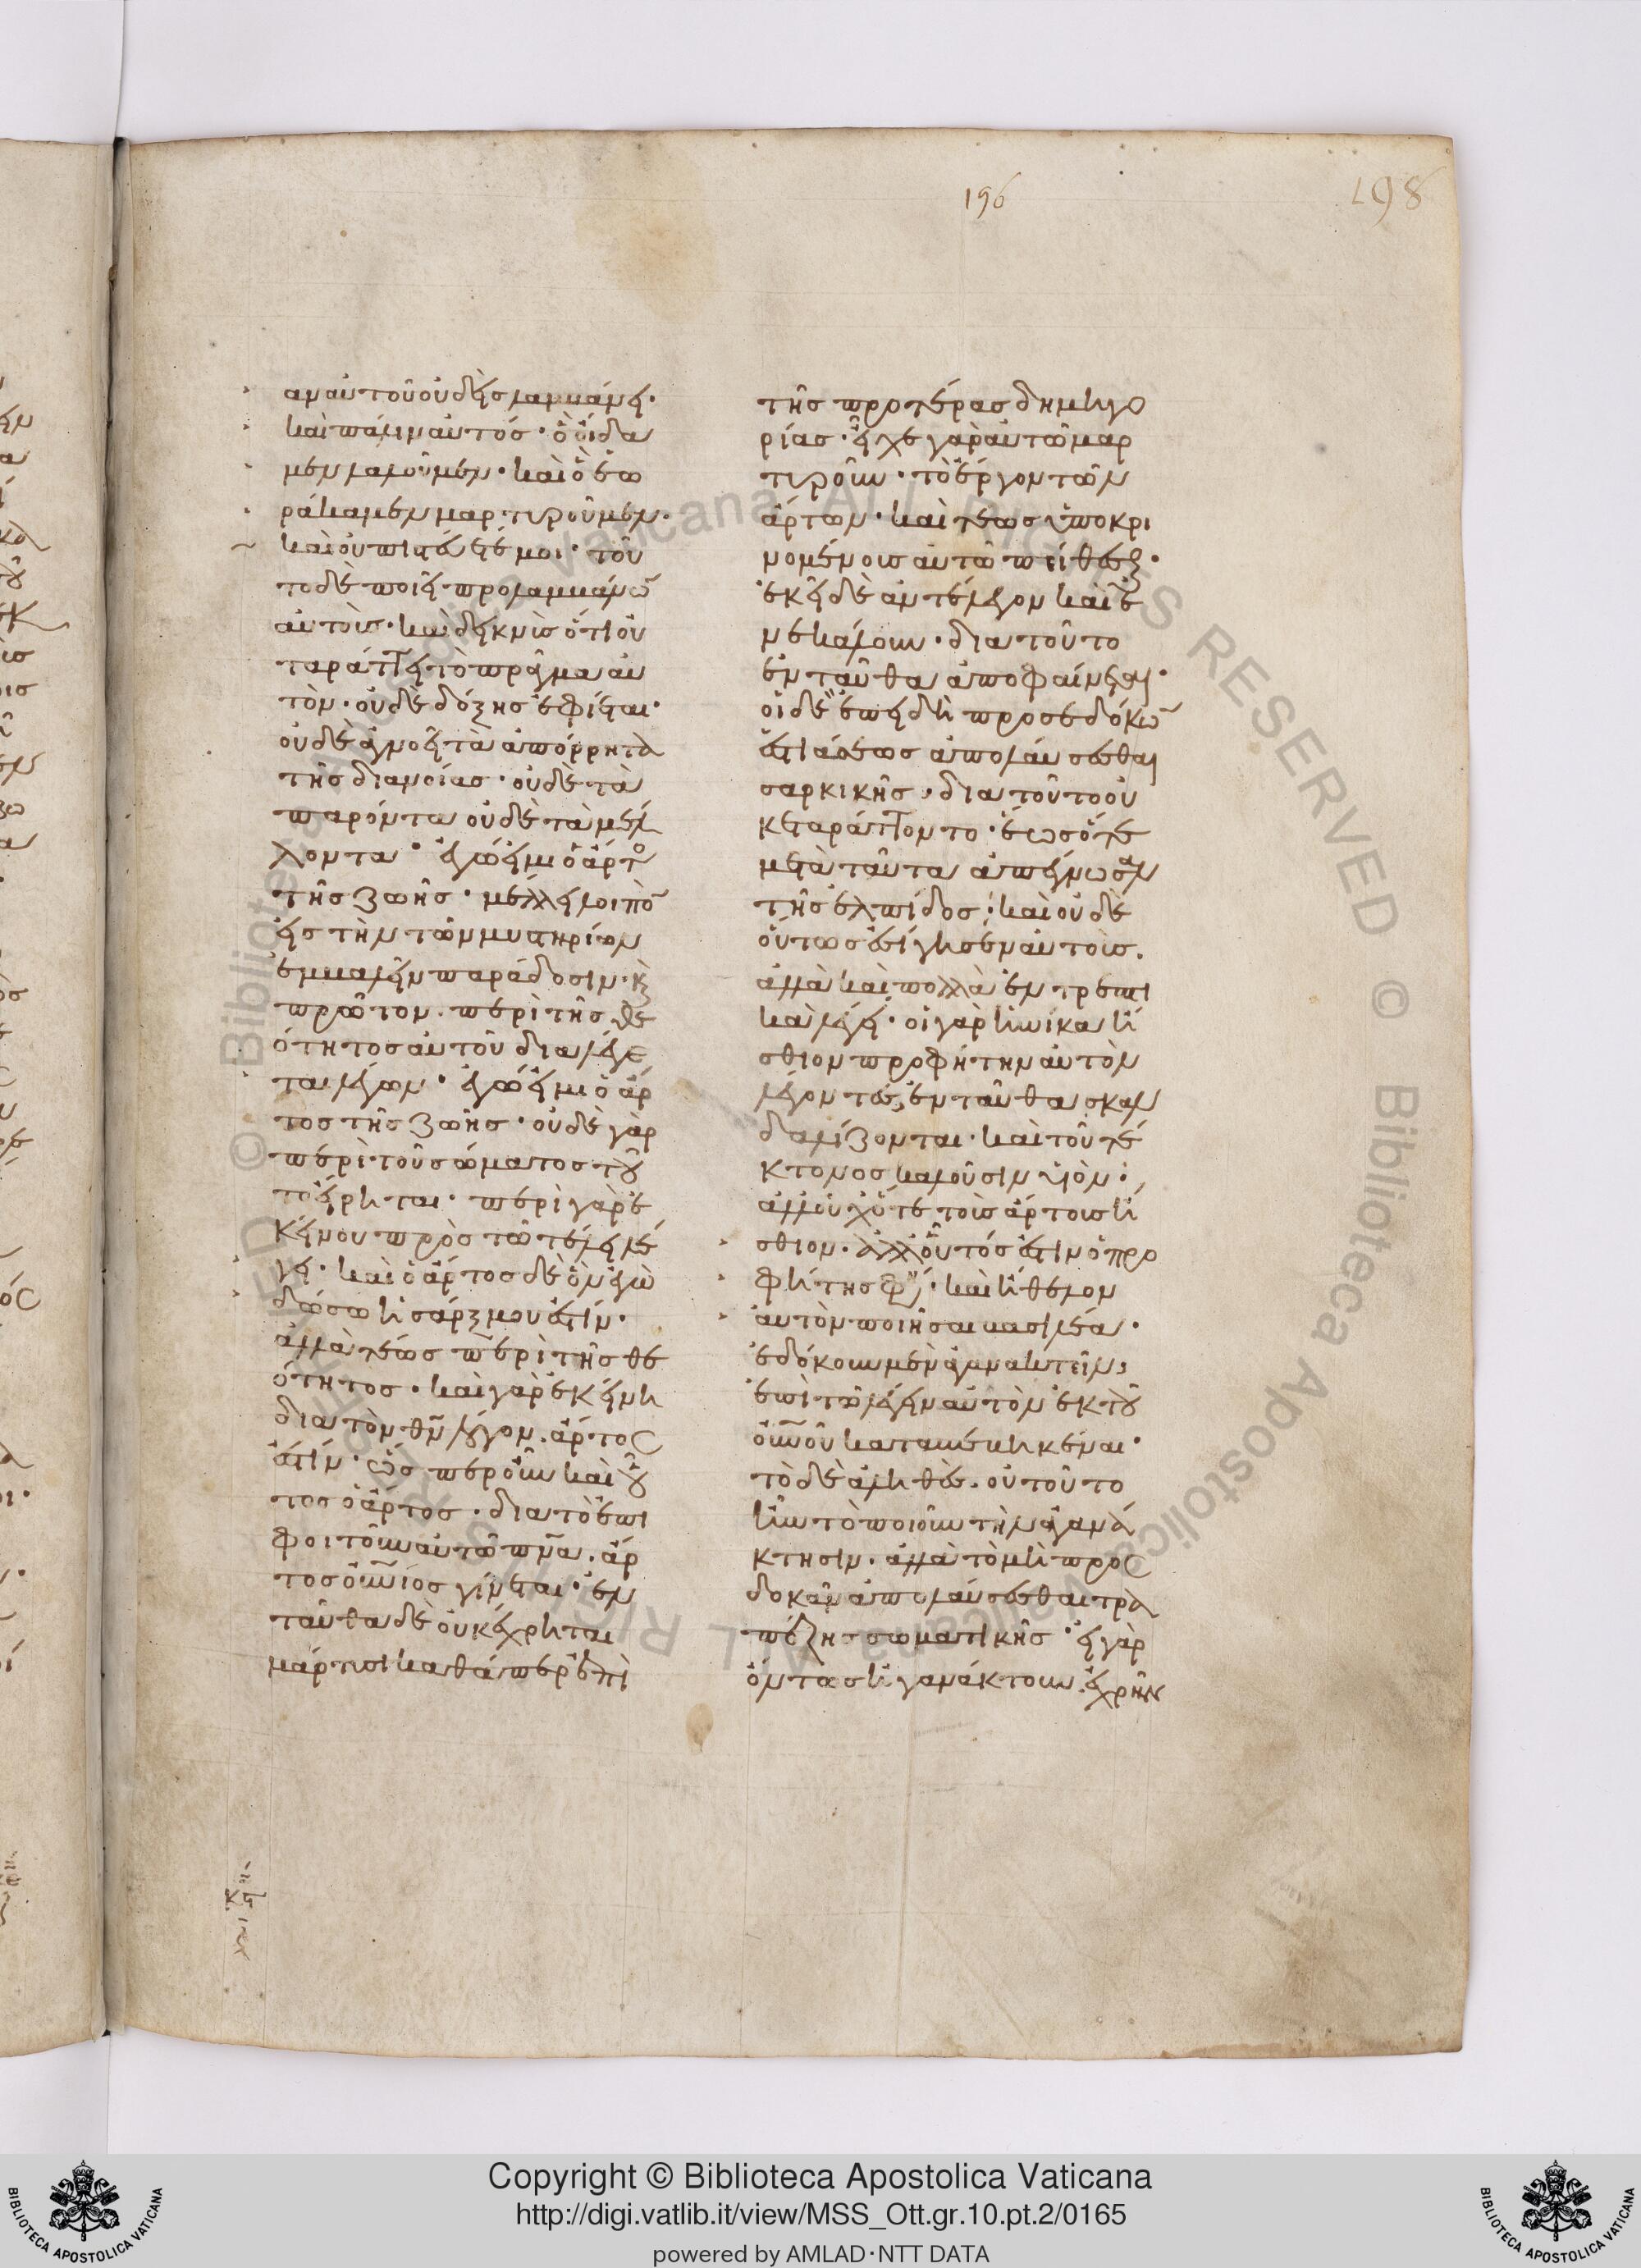 196
198
αν αὐτοῦ οὐδεὶς λαμβάνει·
καὶ πάλιν αὐτός· ὃ οἴδα
μεν λαλοῦμεν· καὶ ὃ ἑω
ράκαμεν μαρτυροῦμεν·
καὶ οὐ πιστεύετέ μοι· τοῦ
το δὲ ποιεῖ προλαμβάνω̄
αὐτοὺς· καὶ δεικνὺς ὅτι οὐ
ταράττει τὸ πρᾶγμα αὐ
τὸν· οὐδὲ δόξης ἐφίεται·
οὐδὲ ἀγνοεῖ τὰ ἀπόρρητα
τῆς διανοίας· οὐδὲ τὰ
παρόντα οὐδὲ τὰ μέλ
λοντα· ἐγώ εἰμι ὁ ἄρτο
τῆς ζωῆς· μέλλει λοιπὸ
εἰς τὴν τῶν μυστηρίων
ἐμβαλεῖν παράδοσιν· κ
πρῶτον· περὶ τῆς θε
ότητος αὐτοῦ διαλέγε
ται λέγων· ἐγώ εἰμι ὁ ἄρ
τος τῆς ζωῆς· οὐδὲ γὰρ
περὶ τοῦ σώματος τοῦ
το εἴρηται· περὶ γὰρ ἐ
κείνου πρὸς τῶ τέλει λέ
γει· καὶ ὁ ἄρτος δὲ ὃν ἐγὼ
δώσω ἡ σάρξ μου ἐστίν·
ἀλλὰ τέως περὶ τῆς θε
ότητος· καὶ γὰρ ἐκείνη
διὰ τὸν θν λόγον· ἄρτος
ἐστίν· ὥσπερ οὖν καὶ οὗ
τος ὁ ἄρτος· διὰ τὸ ἐπι
φοιτοῦν αὐτῶ πνα· ἄρ
τος οὐνιος γίνεται· ἐν
ταῦθα δὲ οὐ κέχρηται
μάρτυσι καθάπερ ἐπὶ
τῆς προτέρας δημηγο
ρίας· εἶχε γὰρ αὐτῶ μαρ
τυροῦν· τὸ ἔργον τῶν
ἄρτων· καὶ τέως ὑποκρι
νομένους αὐτῶ πείθεσθ·
ἐκεῖ δὲ ἀντέλεγον καὶ ἐ
νεκάλουν· διὰ τοῦτο
ἐνταῦθα ἀποφαίνεται·
οἱ δὲ ἐπειδὴ προσεδόκω̄
ἑστιάσεως ἀπολαύσεσθαι
σαρκικῆς· διὰ τοῦτο οὐ
κ ἐταράττοντο· ἕως ὅτε
μετὰ ταῦτα ἀπέγνωσαν
τῆς ἐλπίδος· καὶ οὐδὲ
οὕτως ἐσίγησεν αὐτοὺς·
ἀλλὰ καὶ πολλὰ ἐντρεπτι
κὰ λέγει· οἱ γὰρ ἡνίκα ἤ
σθιον προφήτην αὐτὸν
λέγοντες, ἐνταῦθα σκαν
δαλίζονται· καὶ τοῦ τέ
κτονος καλοῦσιν υἱόν·
ἀλλ' οὐχ ὅτε τοὺς ἄρτους ἤ
σθιον· ἀλλ' οὗτός ἐστιν ὁ προ
φήτης φη· καὶ ἤθελον
αὐτὸν ποιῆσαι βασιλέα·
ἐδόκουν μὲν ἀγανακτεῖν,
ἐπὶ τῶ λέγειν αὐτὸν ἐκ τοῦ
οὐνοῦ καταβεβηκέναι·
τὸ δὲ ἀληθὲς· οὐ τοῦτο
ἦν τὸ ποιοῦν τὴν ἀγανά
κτησιν· ἀλλὰ τὸ μὴ προς
δοκᾶν ἀπολαύσεσθαι τρα
πέζης σωματικῆς· εἰ γὰρ
ὄντως ἠγανάκτουν· ἐχρῆν
Copyright © Biblioteca Apostolica Vaticana
http://digi.vatlib.it/view/MSS_Ott.gr.10.pt.2/0165
powered by AMLAD·NTT DATA
BIBLIOTECA APOSTOLICA VATICANA
BIBLIOTECA APOSTOLICA VATICANA